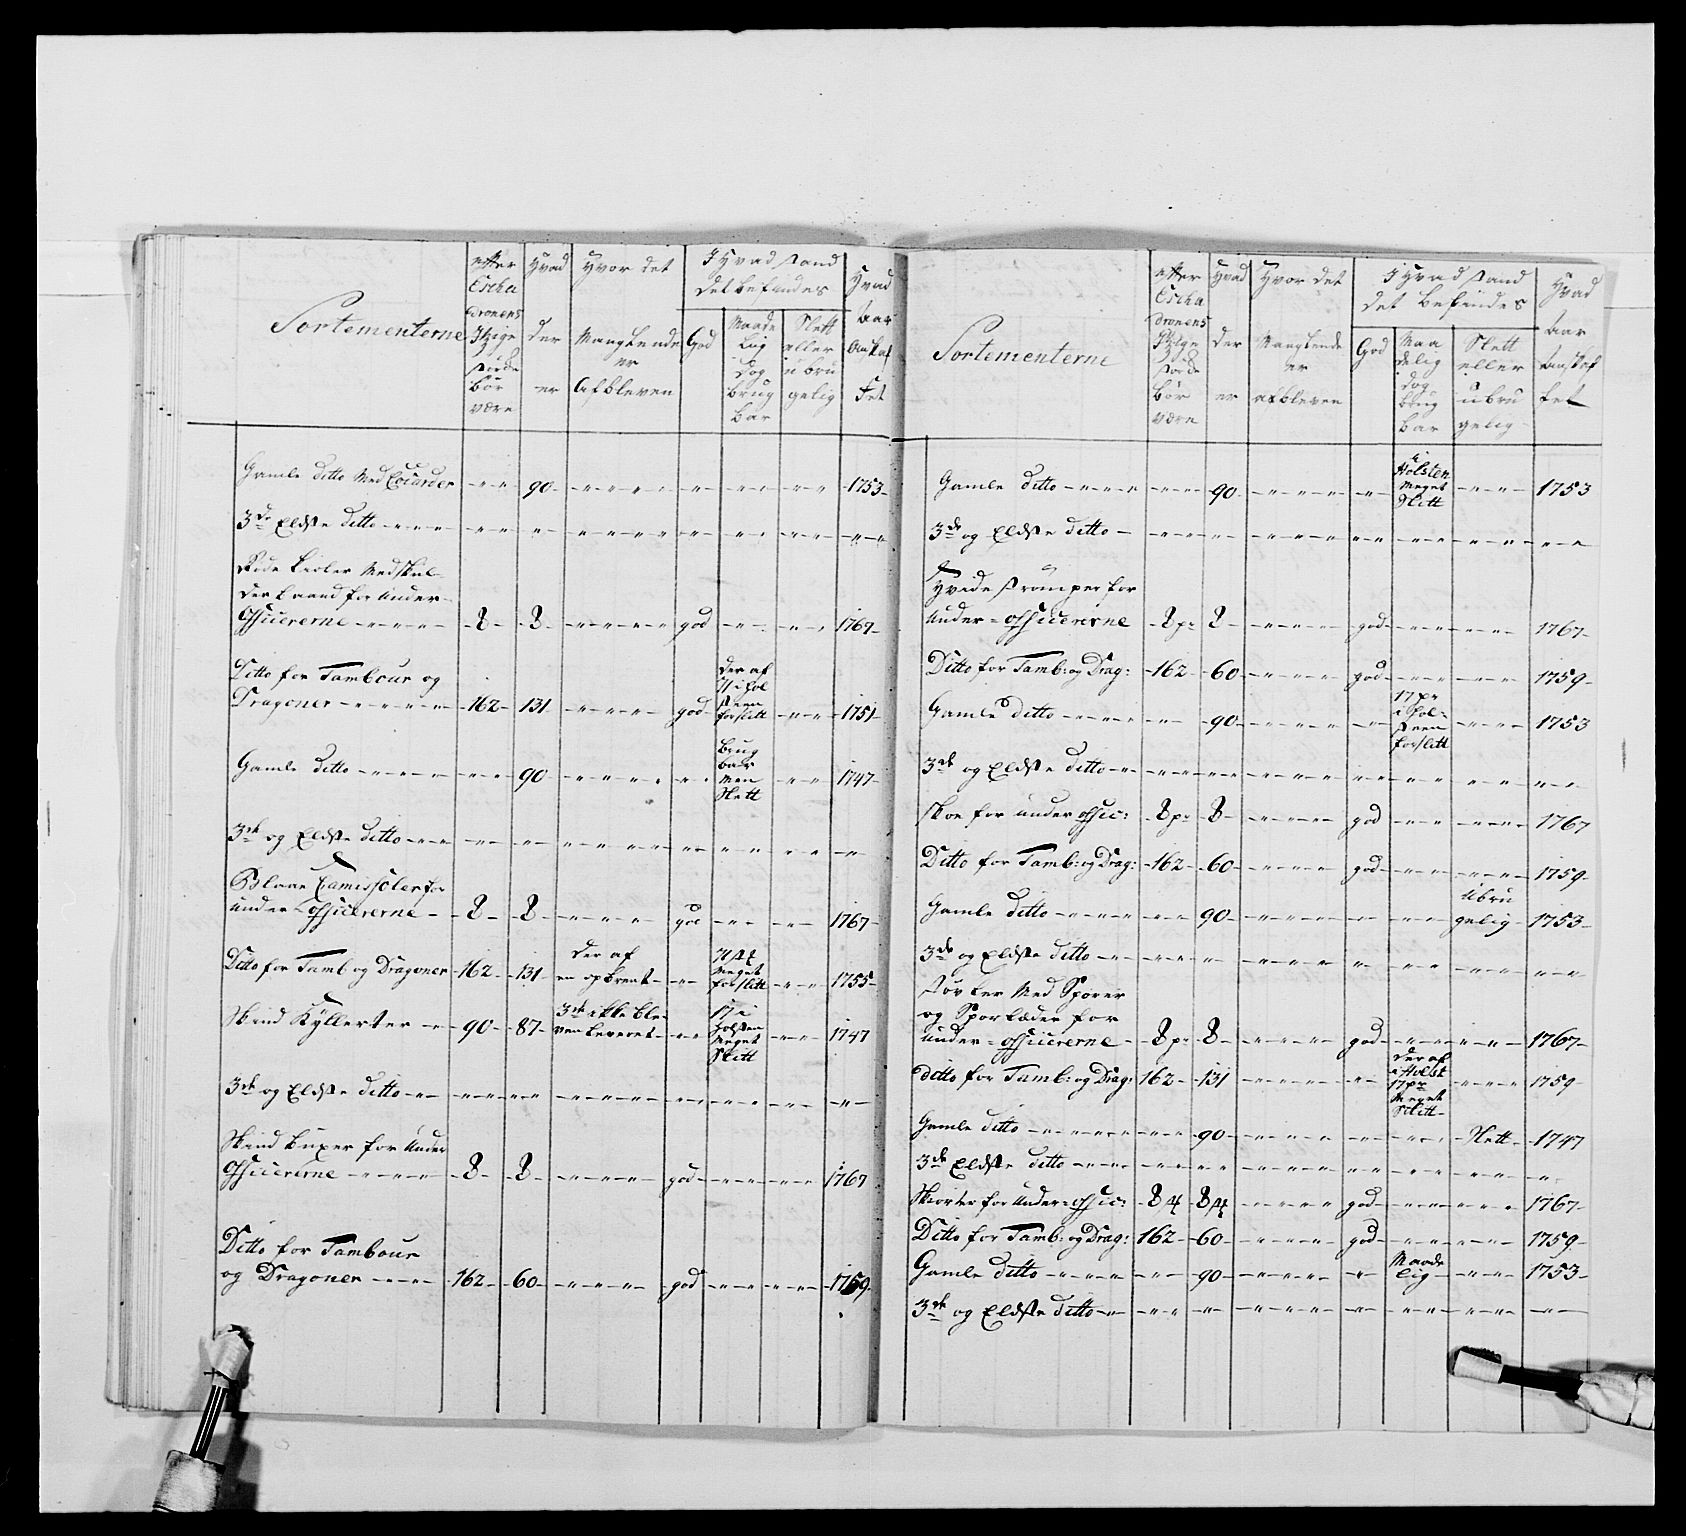 Sortementerne | efter Escha dronens Itzige storde bör være | Hvad der er | Hvor det Manglende er Afbleven | I Hvad stand det befindes | God | Maade lig dog brug bar | Slett eller u bru gelig | Hvad Aar Anskaf fet
Gamle ditto Med Couarder - - - 90 - - - - 1753
3de Eldste ditto - - -
Ride kioler Med skul-
der baand for Under-
Officererne - - - 8 - 8 - - - god - - - 1767
Ditto for Tambour og
Dragoner - - - 162 - 131 - - - god - der af 71 i Hol steen forslitt - - 1751
Gamle ditto - - - 90 - - - brug bar men Slett - - 1747
3de og Eldste ditto - - -
Blaae Camissoler for
under-officererne - 8 - 8 - - - god - - - 1767
Ditto for Tamb og Dragoner - 162 - 131 - der af en opbrent - - 71 st Meget forslitt - - 1755
Skind Kyllerter - 90 - 87 - 3de ikke ble- ven leveret - - 17 i Holsten Meget Slitt - - 1747
3de og Eldste ditto - - -
Skind buxer for Under
Officererne - - - 8 - 8 - - - god - - - 1767
Ditto for Tambour
og Dragoner - - - 162 - 60 - - - god - - - 1759
Sortementerne | efter Escha dronens Itzige storde bör være | Hvad der er | Hvor det Manglende er afbleven | I Hvad stand det befindes | God | Maa delig dog brug bar | Slett eller u bru gelig | Hvad Aar Anskaf fet
Gamle ditto - - - 90 - - - i Holsten Meget Slitt - - - 1753
3de og Eldste ditto - - -
Hvide strömper for
under-officererne - 8 pr 8 - - - god - - - 1767
Ditto for Tamb: og Drag: - 162 - 60 - - - god - - - 1759
Gamle ditto - - - 90 - - - 17 pr i Hol- steen forslitt - - - 1753
3de og Eldste ditto - - -
Skoe for under offic: - 8 pr - 8 - - - god - - - 1767
Ditto for Tamb: og Drag: - 162 - 60 - - - god - - - 1759
Gamle ditto - - - 90 - - - ubru gelig - 1753
3de og Eldste ditto - - -
Stövler Med Sporer
og Sporlæder for
under-officererne - 8 pr - 8 - - - god - - - 1767
ditto for Tamb: og Drag: 162 - 131 - - - der af i Holst 17 pr Meget Slitt - - - 1759
Gamle ditto - - - 90 - - - Slett - 1747
3de Eldste ditto - - -
Skiorter for under-offic: - 8 st - 8 st - - - god - - - 1767
Ditto for Tamb: og Drag: 162 - 60 - - - god - - - 1759
Gamle ditto - - - 90 - - - Maade lig - - - 1753
3de og Eldste ditto - - -